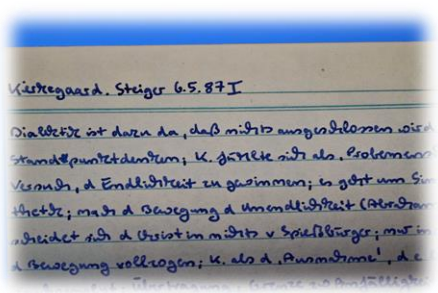 Kierkegaard. Steiger 6.5.87 I
Dialektik ist dazu da, daß nichts ausgeschlossen wird
Standpunktdenken; K. fühlte sich als
Versuch, d Endlichkeit zu gewinnen; es geht um
thetik; nach d Bewegung d Unendlichkeit (Abraham
scheidet sich d Christ in nichts v Spießbürger; nur in
d Bewegung vollzogen; K. als d „Ausnahme",